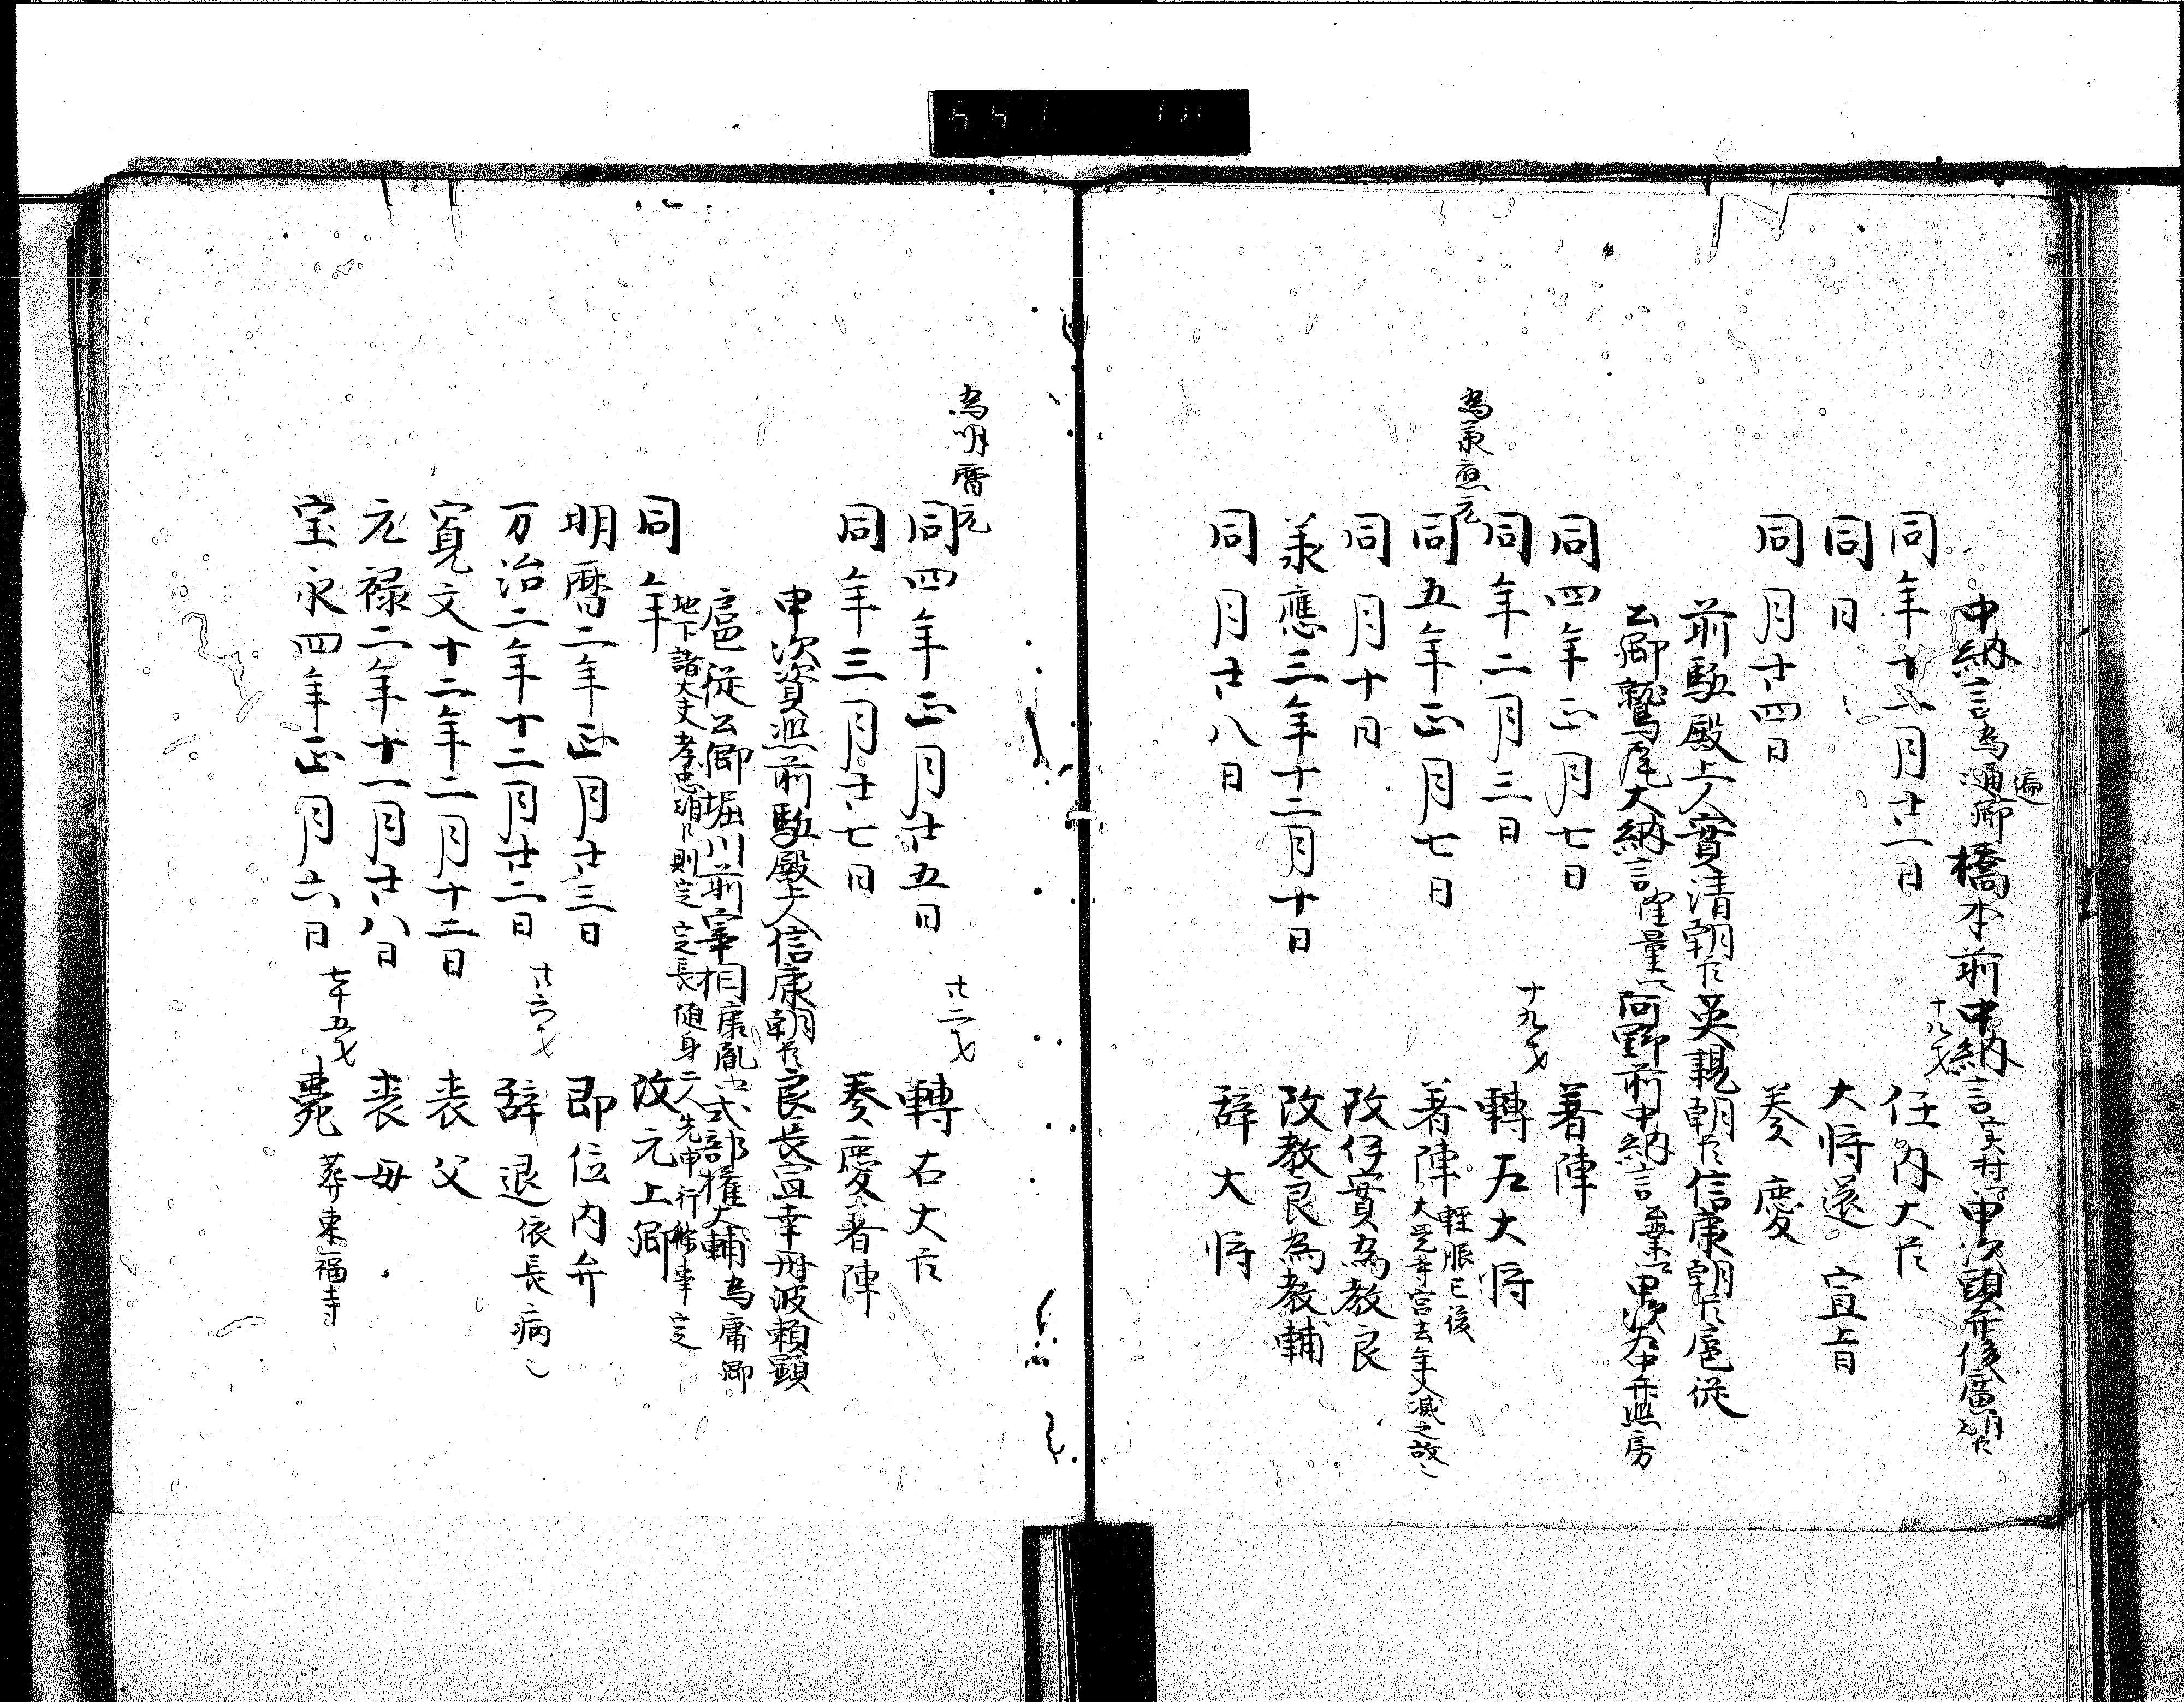 中納言為適卿橋本前中納言実村申次頭弁俊廣朝臣
同年十二月廿二日 十八才 任内大臣
同日 大将還宣旨
同月廿四日 奏慶
前駈殿上人實清朝臣英親朝臣信康朝臣扈従
公卿鷲尾大納言隆量阿野前中納言業申次右中弁熙房
同四年正月七日 著陣
同年二月三日 十九才 轉左大将
為承應元
同五年正月七日 著陣 軽服已後 大覚寺宮去年入滅之故
同月十日 改伊實為教良
承應三年十二月十日 改教良為教輔
同月廿八日 辞大将
為明暦元
同四年正月廿五日 廿二才 轉右大臣
同年三月廿七日 奏慶著陣
申次資熙前駈殿上人信康朝臣良長宣幸丹波頼顕
扈従公卿堀川前宰相康胤式部権大輔為庸卿
地下諸大夫孝忠 則定 定長 随身二人先申行 事定
同年 改元上卿
明暦二年正月廿三日 即位内弁
万治二年十二月廿二日 廿六才 辞退 依長病
寛文十二年二月十三日 喪父
元禄二年十一月廿八日 喪母
宝永四年正月六日 七十五才 薨 葬東福寺